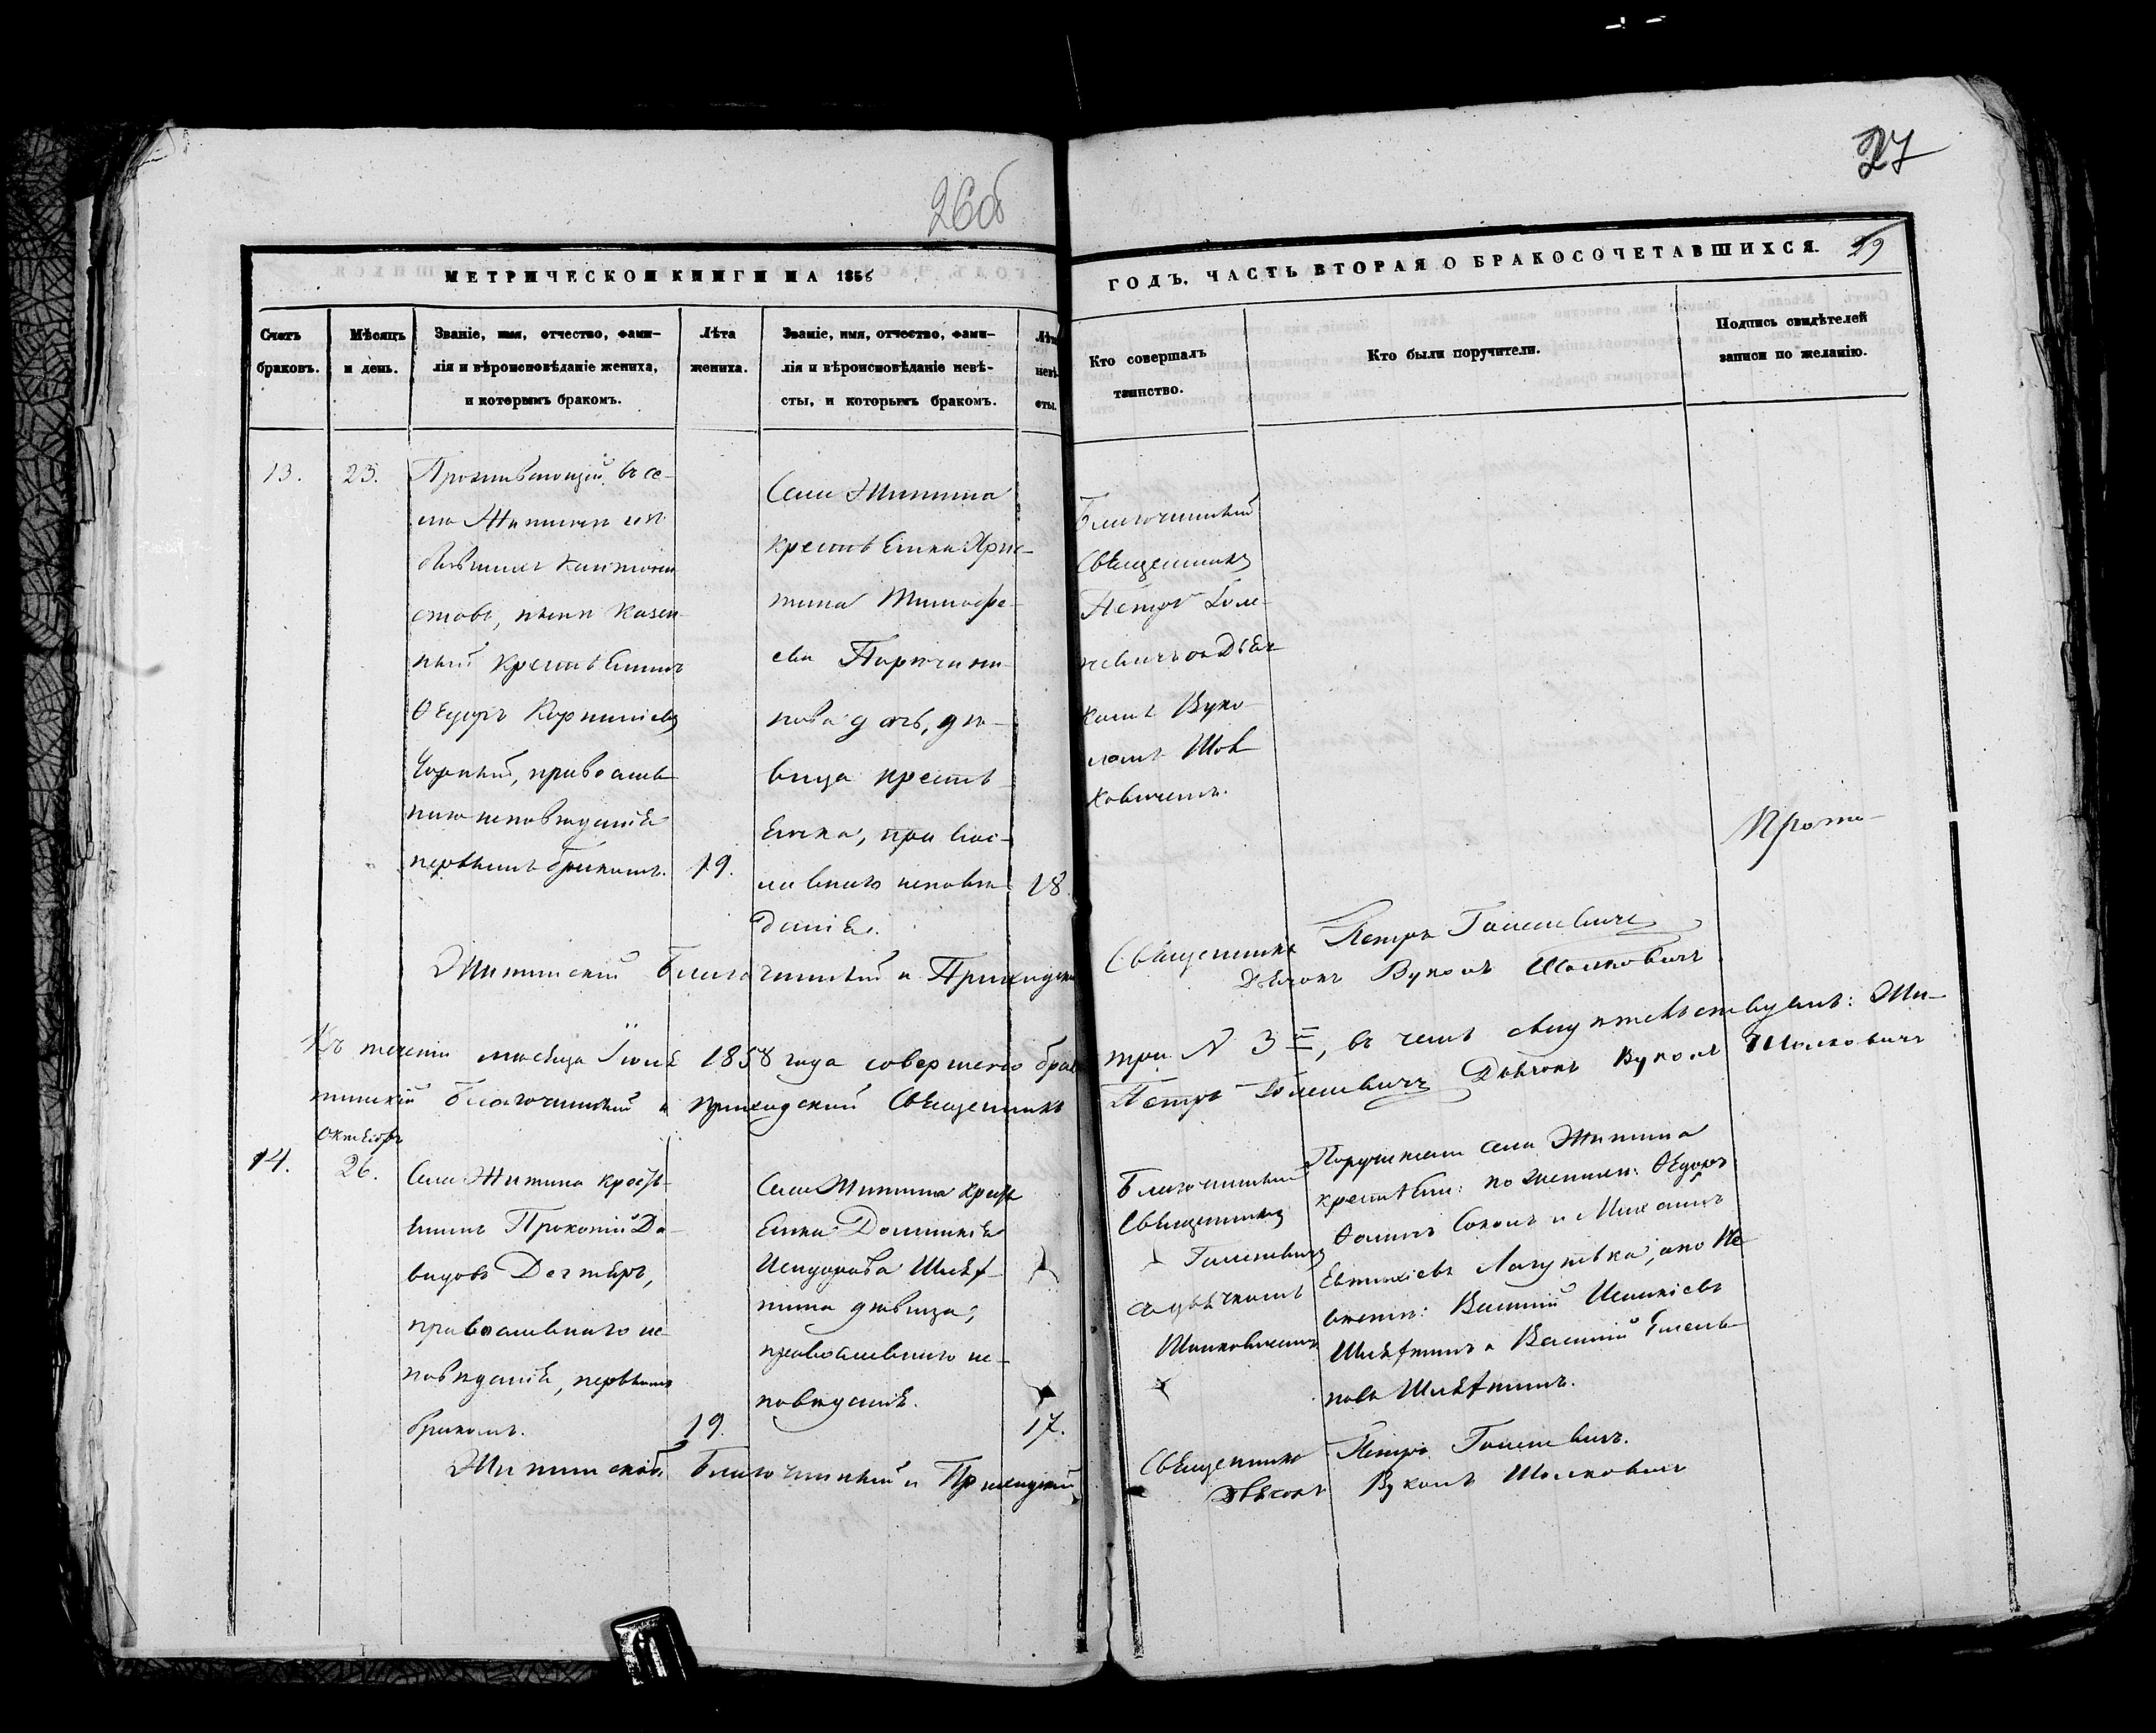 27
26об
МЕТРИЧЕСКОЙ КНИГИ НА 1858
ГОДЪ, ЧАСТЬ ВТОРАЯ О БРАКОСОЧЕТАВШИХСЯ.
29
Счетъ
браковъ.
Мѣсяцъ
и день.
Званіе, имя, отчество, фами-
лія и вѣроисповѣданіе жениха,
и которымъ бракомъ.
Лѣта
жениха.
Званіе, имя, отчество, фами-
лія и вѣроисповѣданіе невѣ-
сты, и которымъ бракомъ.
Лѣта
невѣ-
сты.
Кто совершалъ
таинство.
Кто были поручители.
Подпись свидѣтелей
записи по желанію.
13.
23.
Проживающій въ се-
лѣ Житинѣ изъ
бывшихъ кантони-
стовъ, нынѣ казен-
ный крестьянинъ
Ѳедоръ Корнилiевъ
Чорный, православ-
наго исповѣданія
первымъ бракомъ.
19.
Села Житина
крестьянина
Тимофе-
ева
нова дочь, дѣ-
вица крестъ-
янка, правос-
лавнаго исповѣ-
данія.
18.
Благочинный
Священникъ
Петръ Голе-
невичъ съ Дьяч-
комъ Вуко-
ломъ Шол-
ковичемъ.
Житинскій Благочинный и Приходскій
Священникъ Петръ Галеневичъ
Дьячокъ Вуколъ Шолковичъ
Прото-
Къ теченіи мѣсяца Іюля 1858 года совершено брак
три N 3=, въ чемъ свидѣтельствуемъ: Жи-
тинскій Благочинный и приходскій Священникъ
Петръ Голеневичъ Дьячокъ Вуколъ Шолковичъ
Октября
14.
26.
Села Житина кресть-
янинъ Прокопій Да-
видовъ Дегтяръ,
православнаго ис-
повѣданія, первымъ
бракомъ.
19.
Села Житина кресть
янка Домникія
Исидорова
дѣвица,
православнаго ис-
повѣданія.
17.
Благочинный
Священникъ
Галеневичъ
съ дьячкомъ
Шолковичемъ
Поручители села Житина
крестьяне: по женихѣ: Ѳедоръ
Ѳоминъ Соколъ и Михаилъ
Евтихіевъ а по не-
вѣстѣ: Василій
и Василій
Житинскій Благочинный и Приходскій
Священникъ Петръ Галеневичъ.
Дьячокъ Вуколъ Шолковичъ